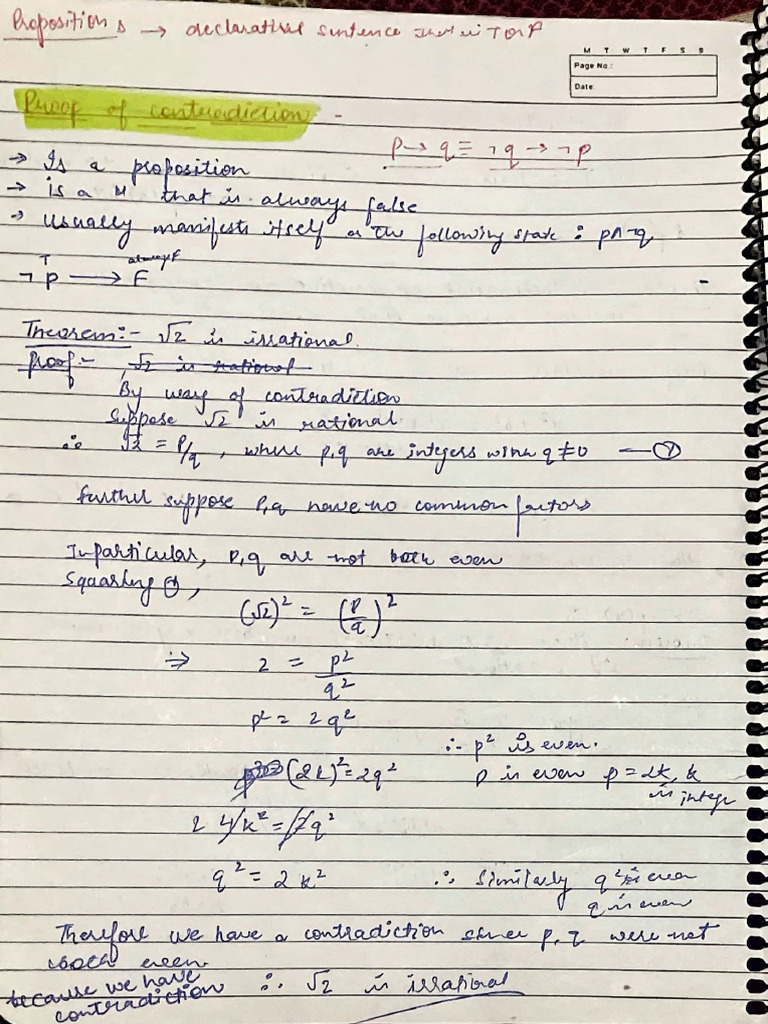 Propositions → declarative sentence that is T or F
M T W T F S S
Page No.:
Date:
Proof of contradiction -
p → q ≡ ¬q → ¬p
→ Is a proposition
→ is a " that is always false
→ usually manifests itself as the following state : p∧¬q
T always F
¬p ⟶ F
Theorem:- √2 is irrational.
Proof:- √2 is rational
By way of contradiction
Suppose √2 is rational
∴ √2 = P/q , where p,q are integers with q≠0 —①
further suppose P,q have no common factors
In particular, P,q are not both even
Squaring ①,
(√2)² = (P/q)²
⇒ 2 = p²/q²
p² = 2q²
∴ p² is even.
(2k)² = 2q² p is even p = 2k, k
is integ
2 4k² = 2q²
q² = 2k² ∴ Similarly q² is even
q is even
Therefore we have a contradiction since p, q were not
both even.
because we have
contradiction ∴ √2 is irrational